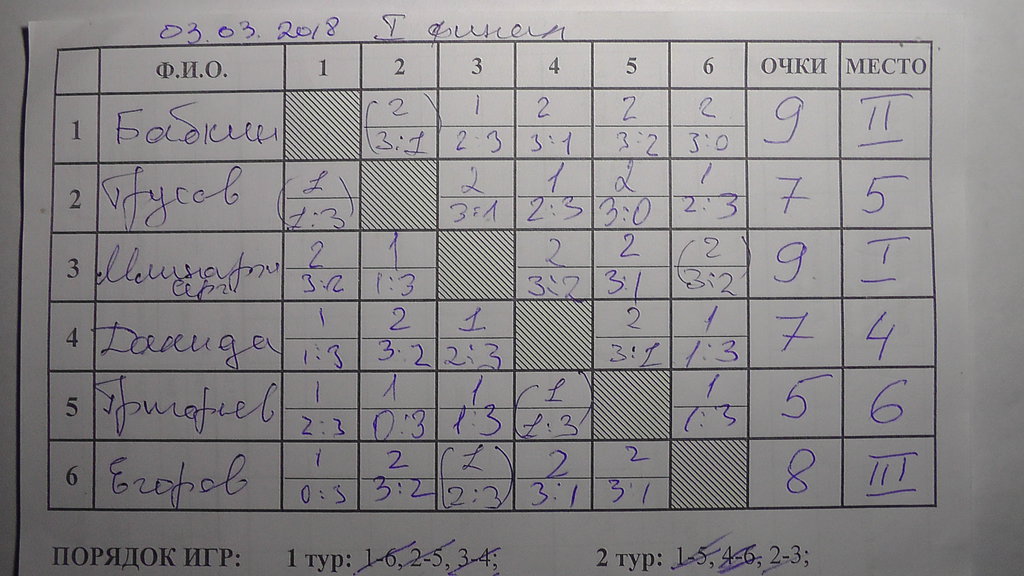 03.03.2018 I финал
Ф.И.О. 1 2 3 4 5 6 ОЧКИ МЕСТО
1 Бабкин (2) 1 2 2 2 9 II
3:1 2:3 3:1 3:2 3:0
2 Трусов (1) 2 1 2 1 7 5
1:3 3:1 2:3 3:0 2:3
3 2 1 2 2 (2) 9 I
3:2 1:3 3:2 3:1 3:2
4 1 2 1 2 1 7 4
1:3 3:2 2:3 3:1 1:3
5 Григорьев 1 1 1 (1) 1 5 6
2:3 0:3 1:3 1:3 1:3
6 Егоров 1 2 (1) 2 2 8 III
0:3 3:2 2:3 3:1 3:1
ПОРЯДОК ИГР: 1 тур: 1-6, 2-5, 3-4; 2 тур: 1-5, 4-6, 2-3;